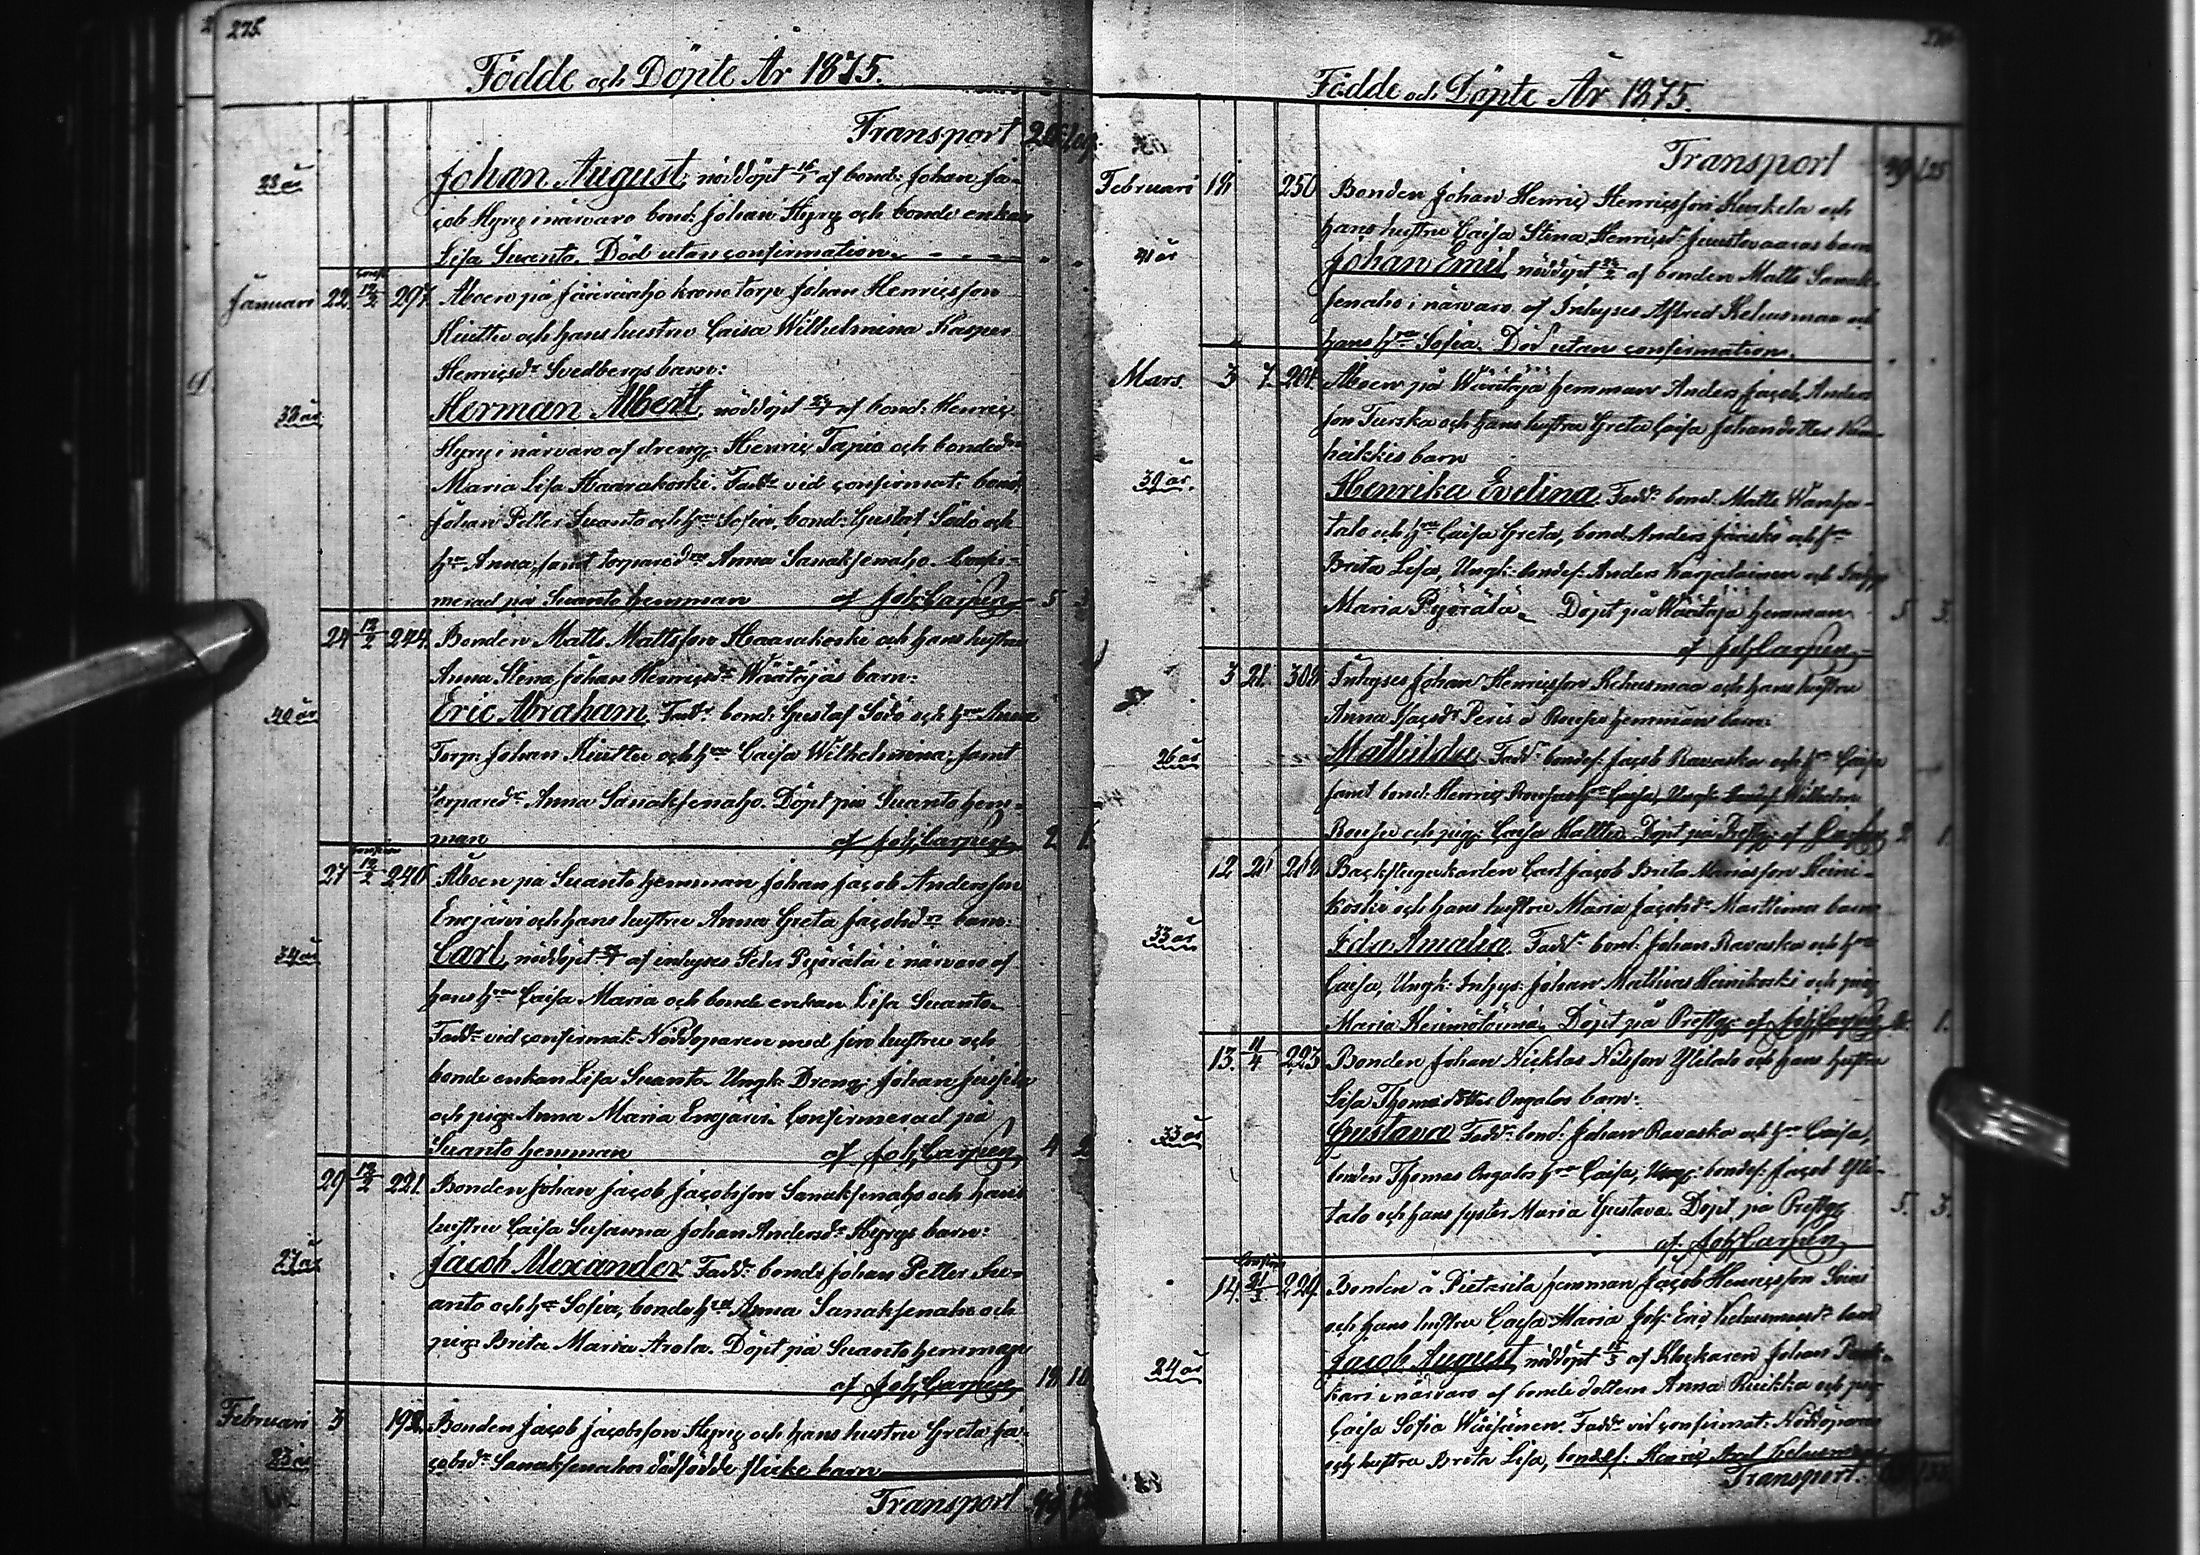 275.
Födde och Döpte År 1875.
Transport
28 år
Johan August, nöddöpt 16/1 af bond: Johan Ja-
cob Hyryç i närvaro bond: Johan Hyryç och bonde enkan
Lisa Suanto. Död utan confirmation.
Januari 22. 12/2 297. Åboen på Jäärääho krono torp Johan Henricsson
Kiuttu och hans hustru Caisa Wilhelmina Kasper
Henricsdr Svedbergs barn:
38 år
Herman Albert, nöddöpt af bond: Henric
Hyryç i närvaro af dreng: Henric Tapio och bondedr
Maria Lisa Haarakoski. Faddr vid confirmat: bond:
Johan Petter Suanto och hru Sofia, bond: Gustaf Sodo och
hru Anna, samt torparedr Anna Sanaksenaho. Confir-
merad på Suanto hemman af Joh: Carpén 5
24 12/2 244. Bonden Matts Mattsson Haarakoski och hans hustru
Anna Stina Johan Henricsdr Wäätäjäs barn:
40 år
Eric Abraham, Faddr: bond: Gustaf Sodo och hru Anna
Torp: Johan Kiuttu och hru Caisa Wilhelmina, samt
torparedr Anna Sanaksenaho. Döpt på Suanto hem-
man af Joh: Carpén 2 1.
27 12/2 246. Åboen på Suanto hemman Johan Jacob Andersson
Enojärvi och hans hustru Anna Greta Jacobsdrs barn:
34 år
Carl, nöddöpt af inhyses Petter Pyörälä i närvaro af
hans hru Caisa Maria och bonde enkan Lisa Suanto.
Faddr vid confirmat: Nöddöparen med sin hustru och
bonde enkan Lisa Suanto. Ungk: Dreng: Johan
och pig: Anna Maria Enojärvi. Confirmerad på
Suanto hemman af Joh: Carpén 4 2
29 12/2 221. Bonden Johan Jacob Jacobsson Sanaksenaho och hans
hustru Caisa Susanna Johan Andersdr Hyrys barn:
27 år
Jacob Alexander. Faddr: bonde Johan Petter Su-
anto och hru Sofia, bonde hru Anna Sanaksenaho och
pig: Brita Maria Arola. Döpt på Suanto hemman
af Joh: Carpén
Februari 3 192. Bonden Jacob Jacobsson Hyryç och hans hustru Greta Ja-
23 år
cobsdr Sanaksenahos dödfödde flicke barn
Transport
Födde och Döpte År 1875.
Transport
Februari 18 250 Bonden Johan Henric Henricsson Kurkela och
hans hustru Caisa Stina Henricsdr barn
41 år
Johan Emil, nöddöpt af bonden Matts Sanak-
senaho i närvaro af Inhyses Alfred Kehusmaa och
hans hru Sofia. Död utan confirmation.
Mars. 3 7. 201. Åboen på Wäätäjä hemman Anders Jacob Anders
son Turska och hans hustru Greta Caisa Johandotter
häkkis barn
39 år.
Henrika Evelina. Faddr: bond: Matts Wanha-
talo och hru Caisa Greta, bond: Anders Jäaskö och hru
Brita Lisa, Ungk: bondes: Anders Karjalainen och
Maria Pyörälä. Döpt på Wäätäjä hemman 5. 3.
af Joh: Carpén
3 21. 302 Inhyses Johan Henricsson Kehusmaa och hans hustru
Anna Isacsdr Peris å hemman barn:
26 år
Mathilda, Faddr: bondes: Jacob Ravaska och hru Caisa
samt bond: Henric
och pig: Caisa Mattila. Döpt på Prestg: af Carpén 2 1.
12 21 Backstugukarlen Carl Jacob Brita Mariasson Heini-
koski och hans hustru Maria Jacobsdr Marttinens barn
33 år
Ida Amalia. Faddr: bond: Johan Ravaska och hru
Caisa, Ungk: Inhys: Johan Mathias Heinikoski och pig
Maria Döpt på Prestg: af Joh: Carpén 1.
13. 11/4 223 Bonden Johan Nicklas Nilsson Ylitalo och hans hustru
Lisa Thomasdotter Ongalos barn:
33 år
Gustava Faddr: bond: Johan Ravaska och hru Caisa,
bonden Thomas Ongalos hru Caisa, Ung: bondes: Jacob Yli-
talo och hans syster Maria Gustava. Döpt på Prestg: 5. 3.
af Joh: Carpén
14. 21/3 229. Bonden å Pietarila hemman Jacob Henricsson Soini
och hans hustru Caisa Maria Joh: Eric barn
24 år
Jacob August, nöddöpt af Klockaren Johan
i närvaro af bonde dottern Anna Riekka och pig
Caisa Sofia Väisänen. Faddr vid confirmat: Nöddöparen
och hustru Brita Lisa, bondes: Henric
Transport.